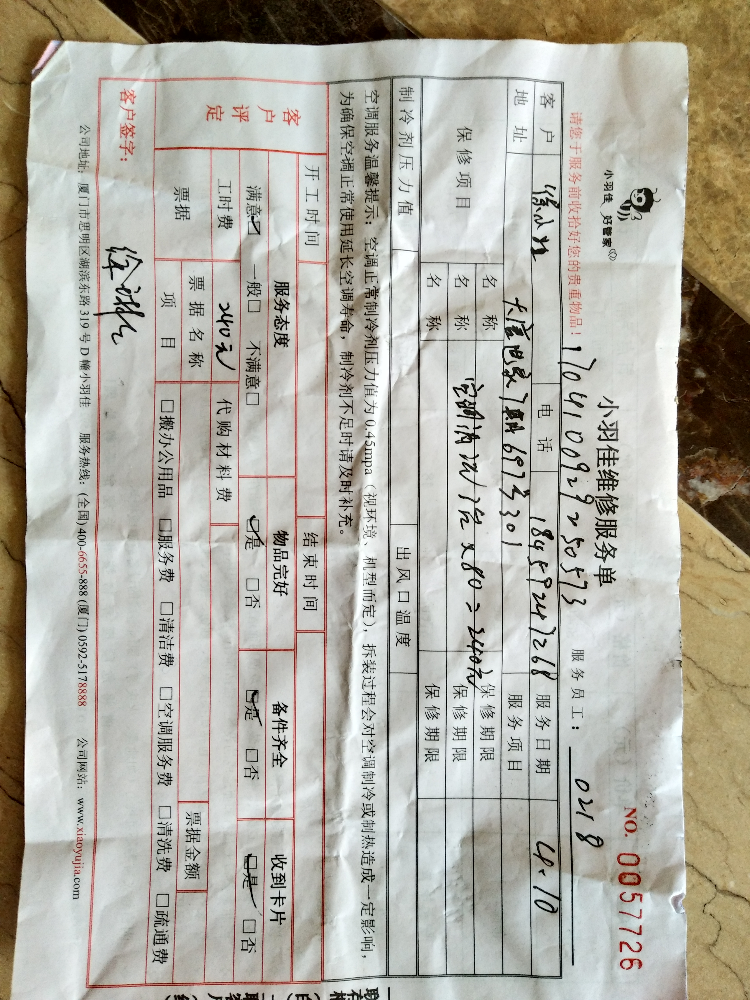 小羽佳 好管家
小羽佳维修服务单
NO. 0057726
请您于服务前收拾好您的贵重物品！
1704100929250573
服务员工： 0218
客户 电话 18459247268 服务日期 4.10
地址 6973301 服务项目
保修项目 名称 保修期限
名称 空调清洗 3台×80=240元 保修期限
名称 保修期限
制冷剂压力值 出风口温度
空调服务温馨提示：空调正常制冷剂压力值为0.45mpa（视环境、机型而定），拆装过程会对空调制冷或制热造成一定影响，
为确保空调正常使用延长空调寿命，制冷剂不足时请及时补充。
开工时间 结束时间
客户评定 服务态度 物品完好 备件齐全 收到卡片
满意☑ 一般□ 不满意□ ☑是 □否 ☑是 □否 ☑是 □否
工时费 240元 代购材料费
票据 票据名称 票据金额
项目 □搬办公用品 □服务费 □清洁费 □空调服务费 □清洗费 □疏通费
客户签字：
公司地址：厦门市思明区湖滨东路319号D幢小羽佳 服务热线：(全国)400-6655-888 (厦门)0592-5178888 公司网站：www.xiaoyujia.com